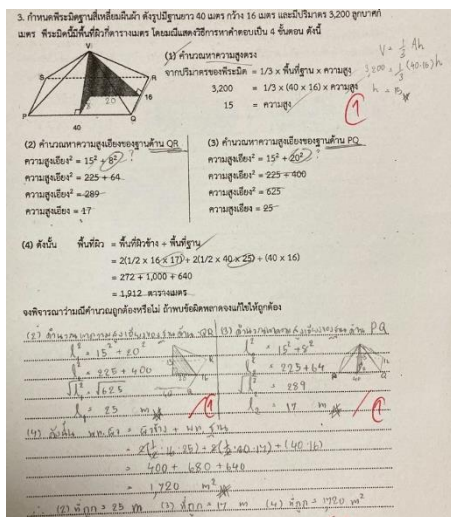 3. กำหนดพีระมิดฐานสี่เหลี่ยมผืนผ้า ดังรูปมีฐานยาว 40 เมตร กว้าง 16 เมตร และมีปริมาตร 3,200 ลูกบาศก์
เมตร พีระมิดนี้มีพื้นที่ผิวกี่ตารางเมตร โดยมีแสดงวิธีการหาคำตอบเป็น 4 ขั้นตอน ดังนี้
V
S
R
P
Q
20
16
40
(1) คำนวณหาความสูงตรง
จากปริมาตรของพีระมิด = 1/3 x พื้นที่ฐาน x ความสูง
3,200 = 1/3 x (40 x 16) x ความสูง
15 = ความสูง
V = 1/3 Ah
3,200 = 1/3 (40·16)h
h = 15
1
(2) คำนวณหาความสูงเอียงของฐานด้าน QR
ความสูงเอียง² = 15² + 8² ?
ความสูงเอียง² = 225 + 64
ความสูงเอียง² = 289
ความสูงเอียง = 17
(3) คำนวณหาความสูงเอียงของฐานด้าน PQ
ความสูงเอียง² = 15² + 20² ?
ความสูงเอียง² = 225 + 400
ความสูงเอียง² = 625
ความสูงเอียง = 25
(4) ดังนั้น พื้นที่ผิว = พื้นที่ผิวข้าง + พื้นที่ฐาน
= 2(1/2 x 16 x 17) + 2(1/2 x 40 x 25) + (40 x 16)
= 272 + 1,000 + 640
= 1,912 ตารางเมตร
จงพิจารณาว่ามีคำนวณถูกต้องหรือไม่ ถ้าพบข้อผิดพลาดจงแก้ไขให้ถูกต้อง
(2) คำนวณหาความสูงเอียงของฐานด้าน QR
l₁² = 15² + 20²
l₁² = 225 + 400
√l₁² = √625
l₁ = 25 m
1
(3) คำนวณหาความสูงเอียงของฐานด้าน PQ
l₂² = 15² + 8²
l₂² = 225 + 64
√l₂² = 289
l₂ = 17 m
1
(4) ดังนั้น พท.ผิว = ผิวข้าง + พท.ฐาน
= 2(1/2·16·25) + 2(1/2·40·17) + (40·16)
= 400 + 680 + 640
= 1,720 m²
(2) ที่ถูก = 25 m (3) ที่ถูก = 17 m (4) ที่ถูก = 1,720 m²